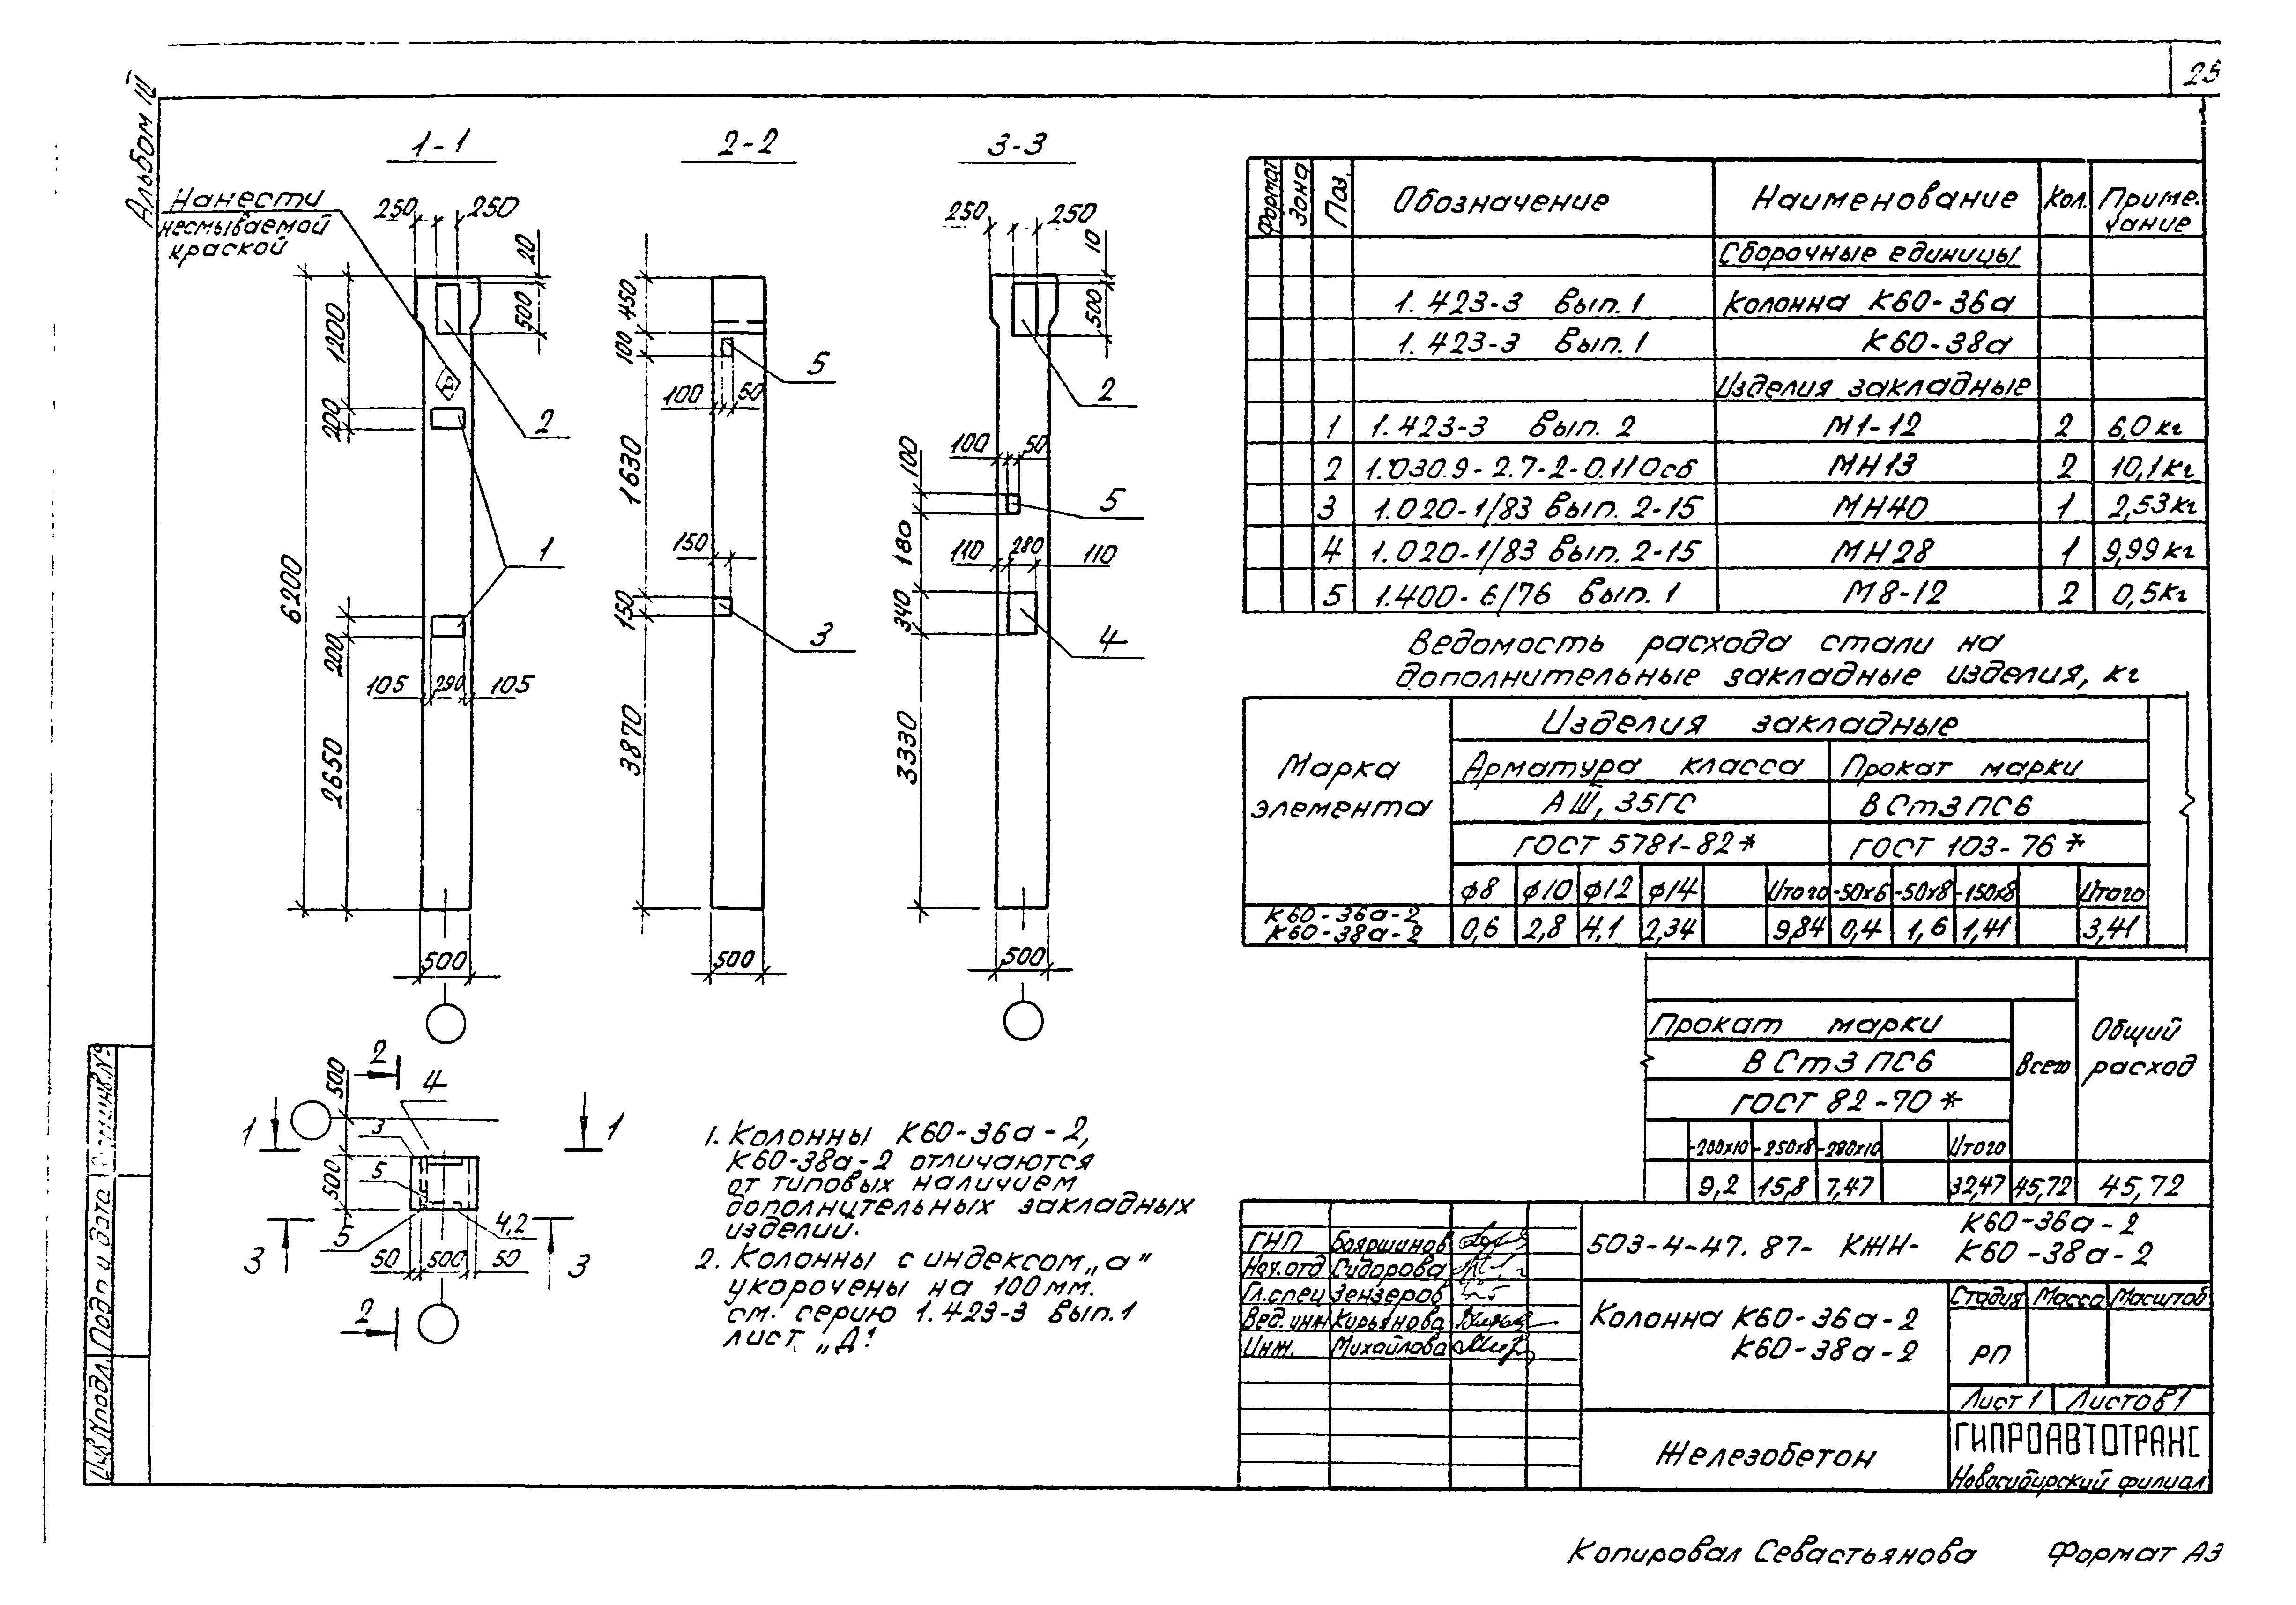 25
Альбом III
1-1
2-2
3-3
Нанести
несмываемой
краской
250 250
20
500
1200
200
6200
200
2650
105 290 105
500
2
1
450
100
1630
150
3870
100 50
150
500
5
3
250 250
10
500
100 50
100
180
110 280 110
340
3330
500
2
5
4
2
4
500
1 1
3
5
500
5
4,2
3 3
50 500 50
2
1. Колонны К60-36а-2,
К60-38а-2 отличаются
от типовых наличием
дополнительных закладных
изделий.
2. Колонны с индексом „а"
укорочены на 100 мм.
см. серию 1.423-3 вып.1
лист „Д".
Формат Зона Поз. Обозначение Наименование Кол. Приме-
чание
Сборочные единицы
1.423-3 вып.1 Колонна К60-36а
1.423-3 вып.1 К60-38а
Изделия закладные
1 1.423-3 вып. 2 М1-12 2 6,0 кг
2 1.030.9-2.7-2-0.110сб МН13 2 10,1 кг
3 1.020-1/83 вып. 2-15 МН40 1 2,53 кг
4 1.020-1/83 вып. 2-15 МН28 1 9,99 кг
5 1.400-6/76 вып. 1 М8-12 2 0,5 кг
Ведомость расхода стали на
дополнительные закладные изделия, кг
Марка
элемента
Изделия закладные
Арматура класса Прокат марки
АIII, 35ГС ВСт3ПС6
ГОСТ 5781-82* ГОСТ 103-76*
ф8 ф10 ф12 ф14 Итого -50х6 -50х8 -150х8 Итого
К60-36а-2
К60-38а-2
0,6 2,8 4,1 2,34 9,84 0,4 1,6 1,41 3,41
Прокат марки
ВСт3ПС6
ГОСТ 82-70*
Всего
Общий
расход
-200х10 -250х8 -280х10 Итого
9,2 15,8 7,47 32,47 45,72 45,72
ГНП Бояршинов
Нач.отд Сидорова
Гл.спец Зензеров
Вед.инж Кирьянова
Инж. Михайлова
503-4-47.87- КЖИ- К60-36а-2
К60-38а-2
Колонна К60-36а-2
К60-38а-2
Стадия Масса Масштаб
РП
Лист 1 Листов 1
Железобетон
ГИПРОАВТОТРАНС
Новосибирский филиал
Инв.№подл. Подп и дата
Копировал Севастьянова Формат А3